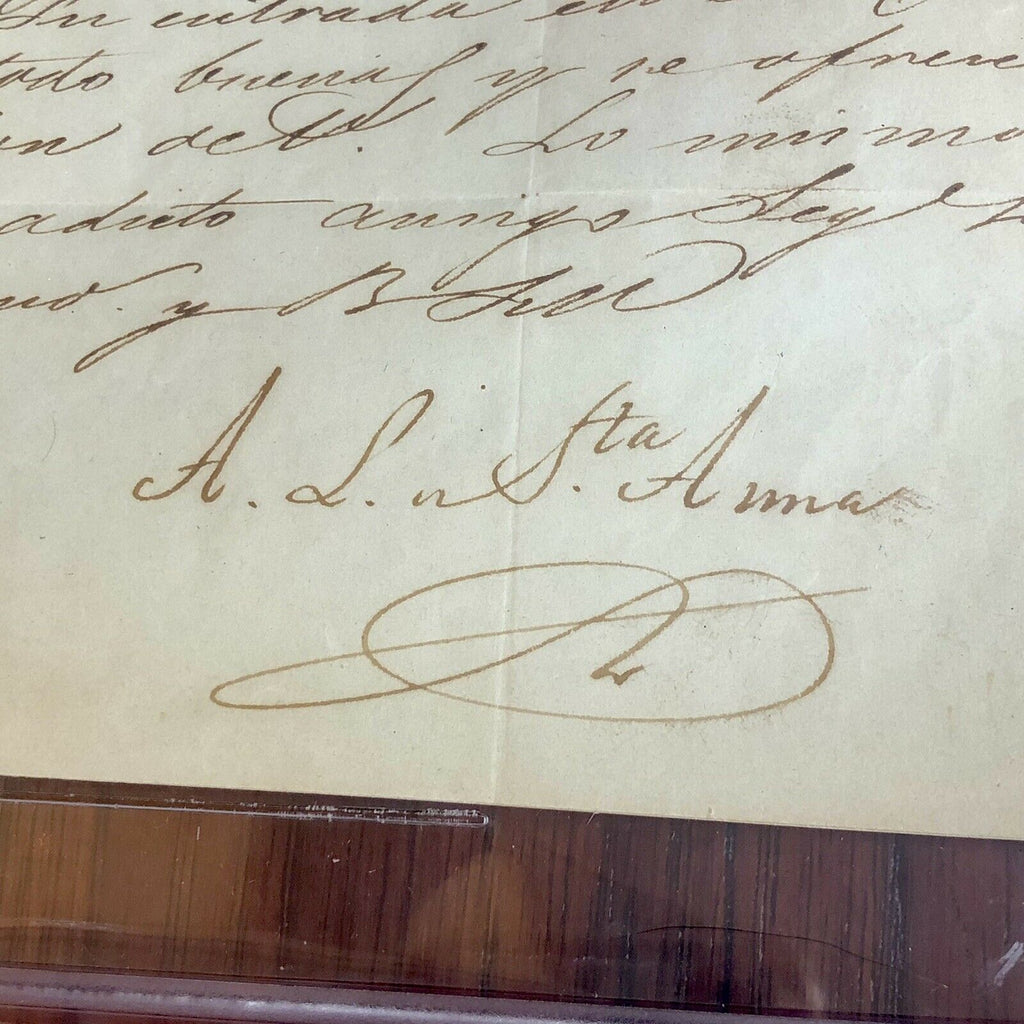 Su entrada en
todo buenas y se ofrece
on de V. Lo mismo
adicto amigo Seg
y B S M
A. L. de S.ta Anna